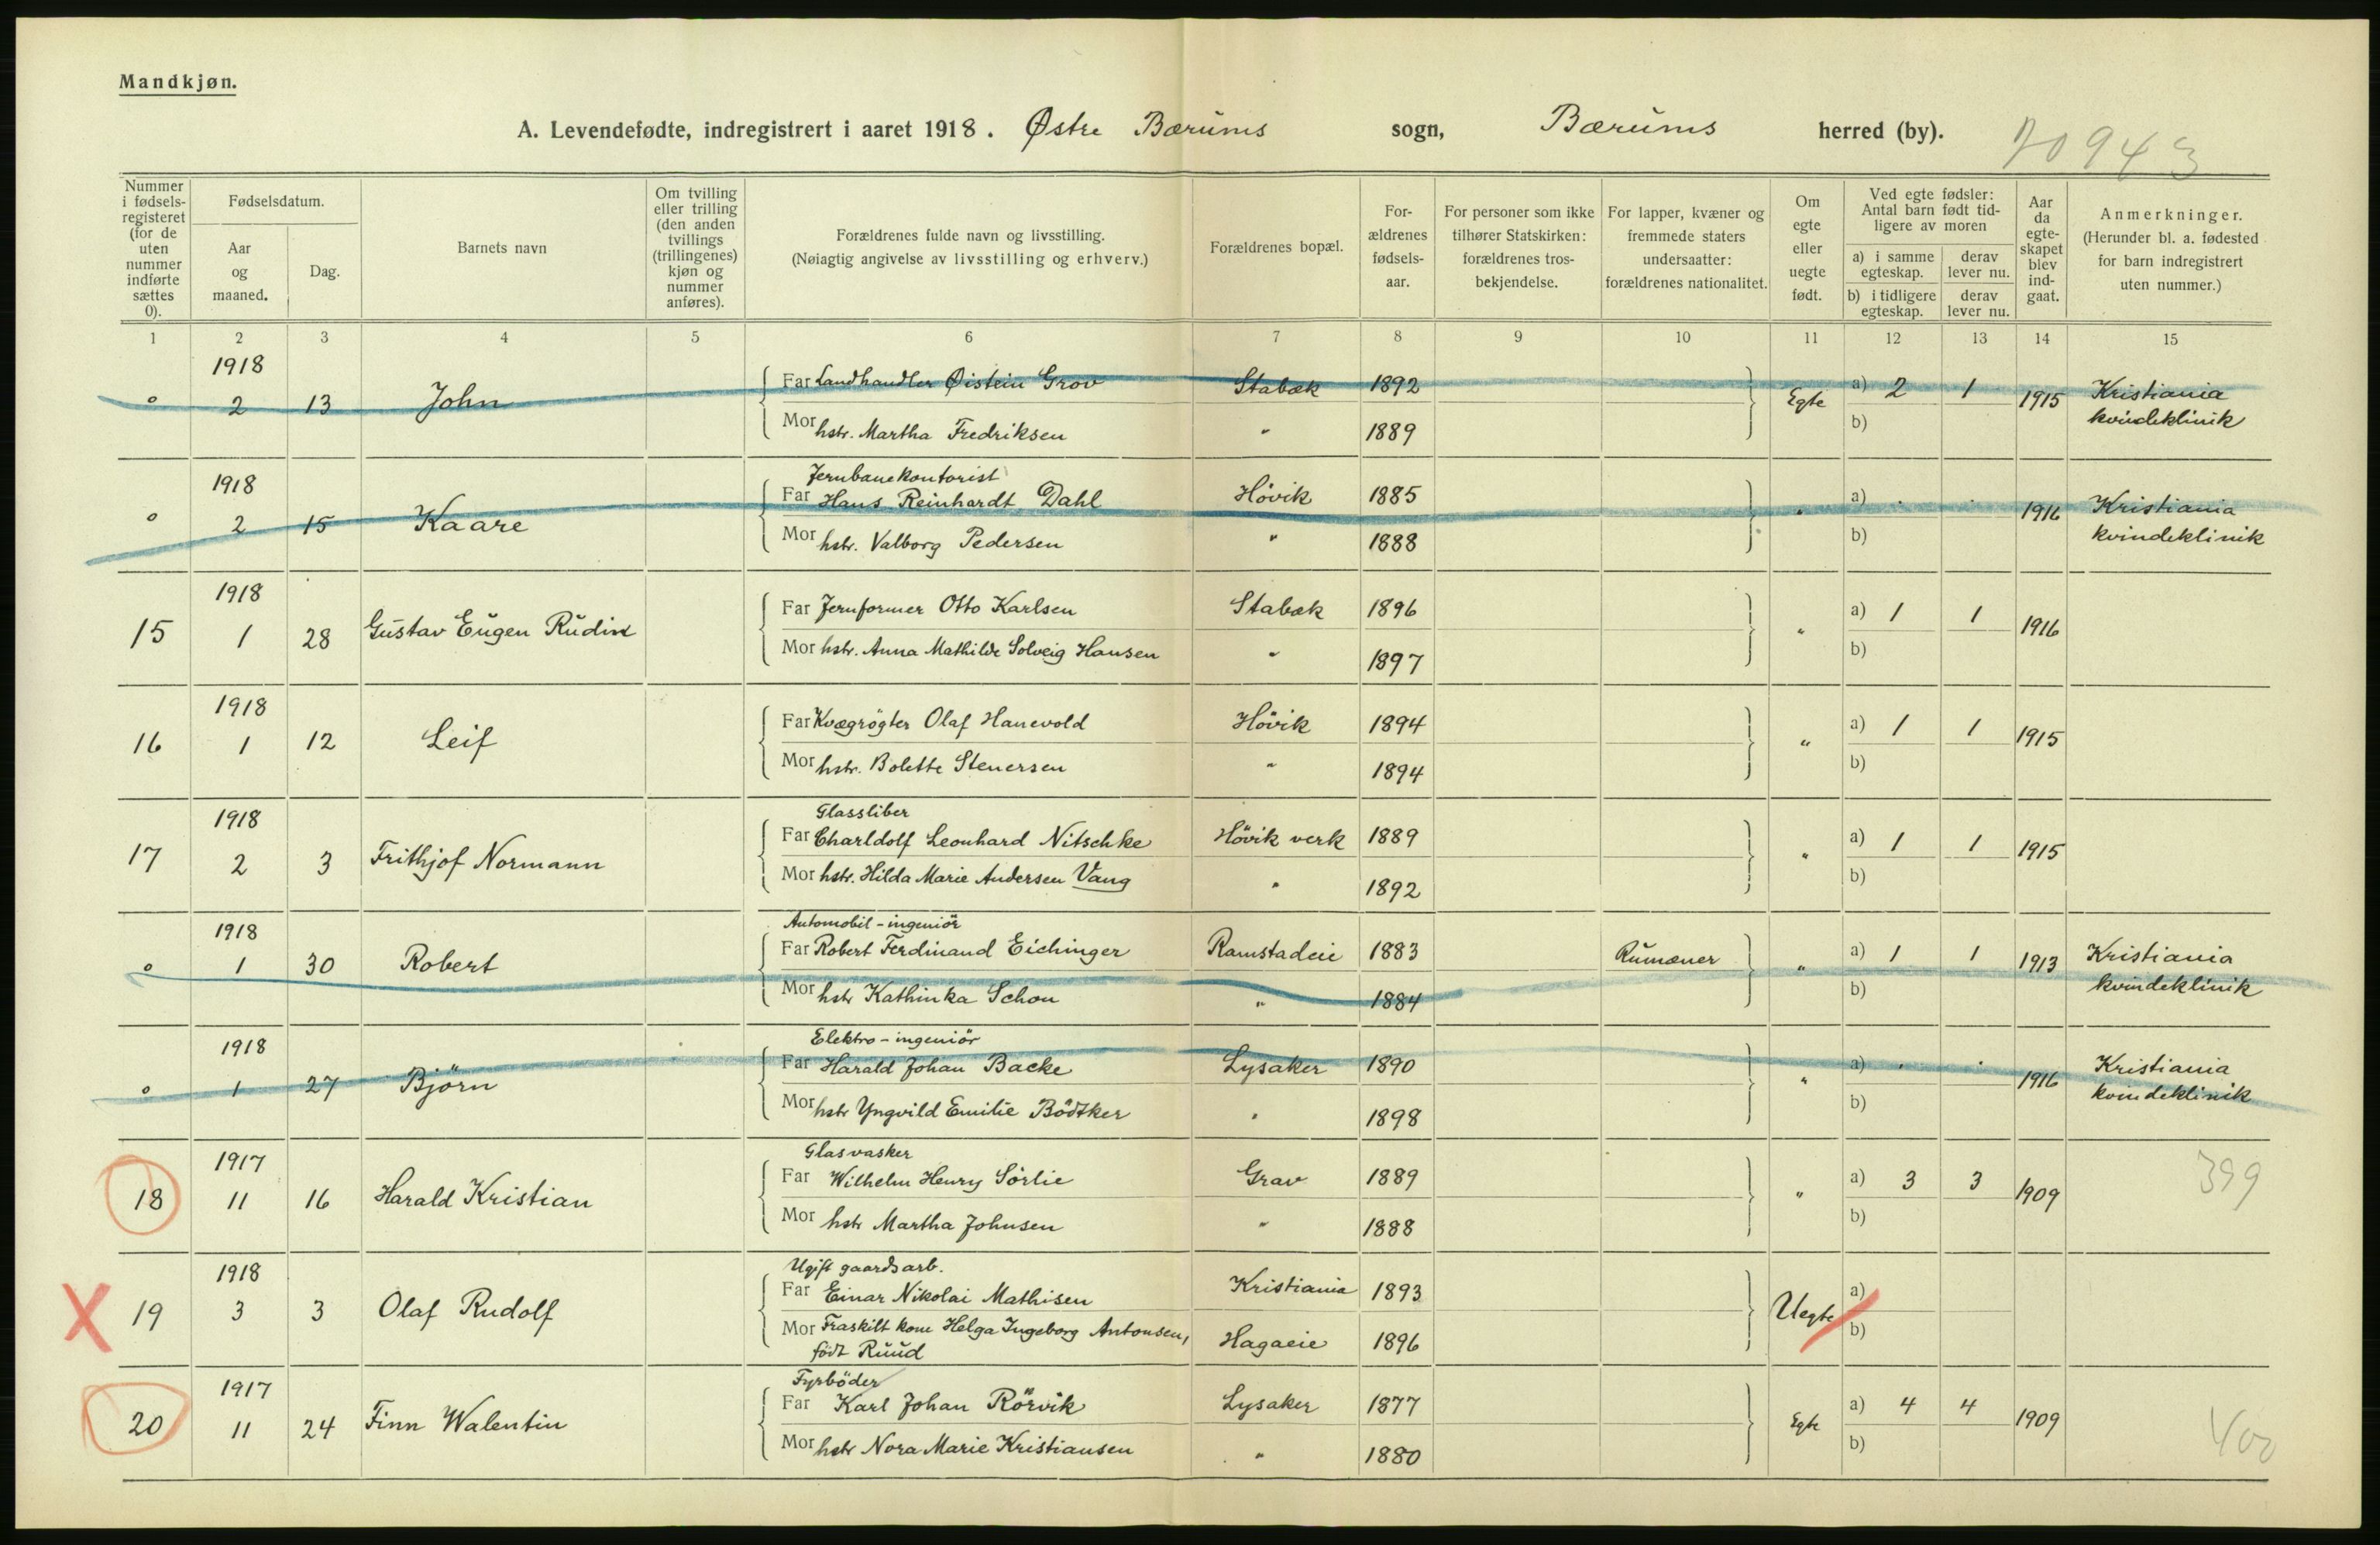 Mandkjøn.
A. Levendefødte, indregistrert i aaret 1918. Østre Bærums sogn, Bærums herred (by). 70943
Nummer i fødsels-registeret (for de uten nummer indførte sættes 0).
Fødselsdatum.
Aar og maaned.
Dag.
Barnets navn
Om tvilling eller trilling (den anden tvillings (trillingenes) kjøn og nummer anføres).
Forældrenes fulde navn og livsstilling.
(Nøiagtig angivelse av livsstilling og erhverv.)
Forældrenes bopæl.
For-ældrenes fødsels-aar.
For personer som ikke tilhører Statskirken: forældrenes tros-bekjendelse.
For lapper, kvæner og fremmede staters undersaatter: forældrenes nationalitet.
Om egte eller uegte født.
Ved egte fødsler: Antal barn født tid-ligere av moren
a) i samme egteskap.
derav lever nu.
b) i tidligere egteskap.
derav lever nu.
Aar da egte-skapet blev ind-gaat.
Anmerkninger.
(Herunder bl. a. fødested for barn indregistrert uten nummer.)
1 2 3 4 5 6 7 8 9 10 11 12 13 14 15
1918
0 2 13 John
Far Landhandler Øistein Grov Stabæk 1892 Egte a) 2 1 1915 Kristiania kvindeklinik
Mor hstr. Martha Fredriksen " 1889 b)
1918
0 2 15 Kaare
Jernbanekontorist
Far Hans Reinhardt Dahl Hövik 1885 " a) . . 1916 Kristiania kvindeklinik
Mor hstr. Valborg Pedersen " 1888 b)
1918
15 1 28 Gustav Eugen Rudin
Far Jernformer Otto Karlsen Stabæk 1896 " a) 1 1 1916
Mor hstr. Anna Mathilde Solveig Hansen " 1897 b)
1918
16 1 12 Leif
Far Kvægrögter Olaf Hanevold Hövik 1894 " a) 1 1 1915
Mor hstr. Bolette Stenersen " 1894 b)
1918
17 2 3 Frithjof Normann
Glassliber
Far Charldolf Leonhard Nitschke Hövik verk 1889 " a) 1 1 1915
Mor hstr. Hilda Marie Andersen Vang " 1892 b)
1918
0 1 30 Robert
Automobil-ingeniör
Far Robert Ferdinand Eichinger Ramstadeie 1883 Rumæner " a) 1 1 1913 Kristiania kvindeklinik
Mor hstr Kathinka Schou " 1884 b)
1918
0 1 27 Björn
Elektro-ingeniör
Far Harald Johan Backe Lysaker 1890 " a) . . 1916 Kristiania kvindeklinik
Mor hstr Yngvild Emilie Bödtker " 1898 b)
1917
18 11 16 Harald Kristian
Glasvasker
Far Wilhelm Henry Sörlie Grav 1889 " a) 3 3 1909 399
Mor hstr Martha Johnsen " 1888 b)
1918
X 19 3 3 Olaf Rudolf
Ugift gaardsarb.
Far Einar Nikolai Mathisen Kristiania 1893 Uegte a)
Mor Fraskilt kone Helga Ingeborg Antonsen, Hagaeie 1896 b)
födt Ruud
1917
20 11 24 Finn Walentin
Fyrböder
Far Karl Johan Rörvik Lysaker 1877 Egte a) 4 4 1909 400
Mor hstr Nora Marie Kristiansen " 1880 b)